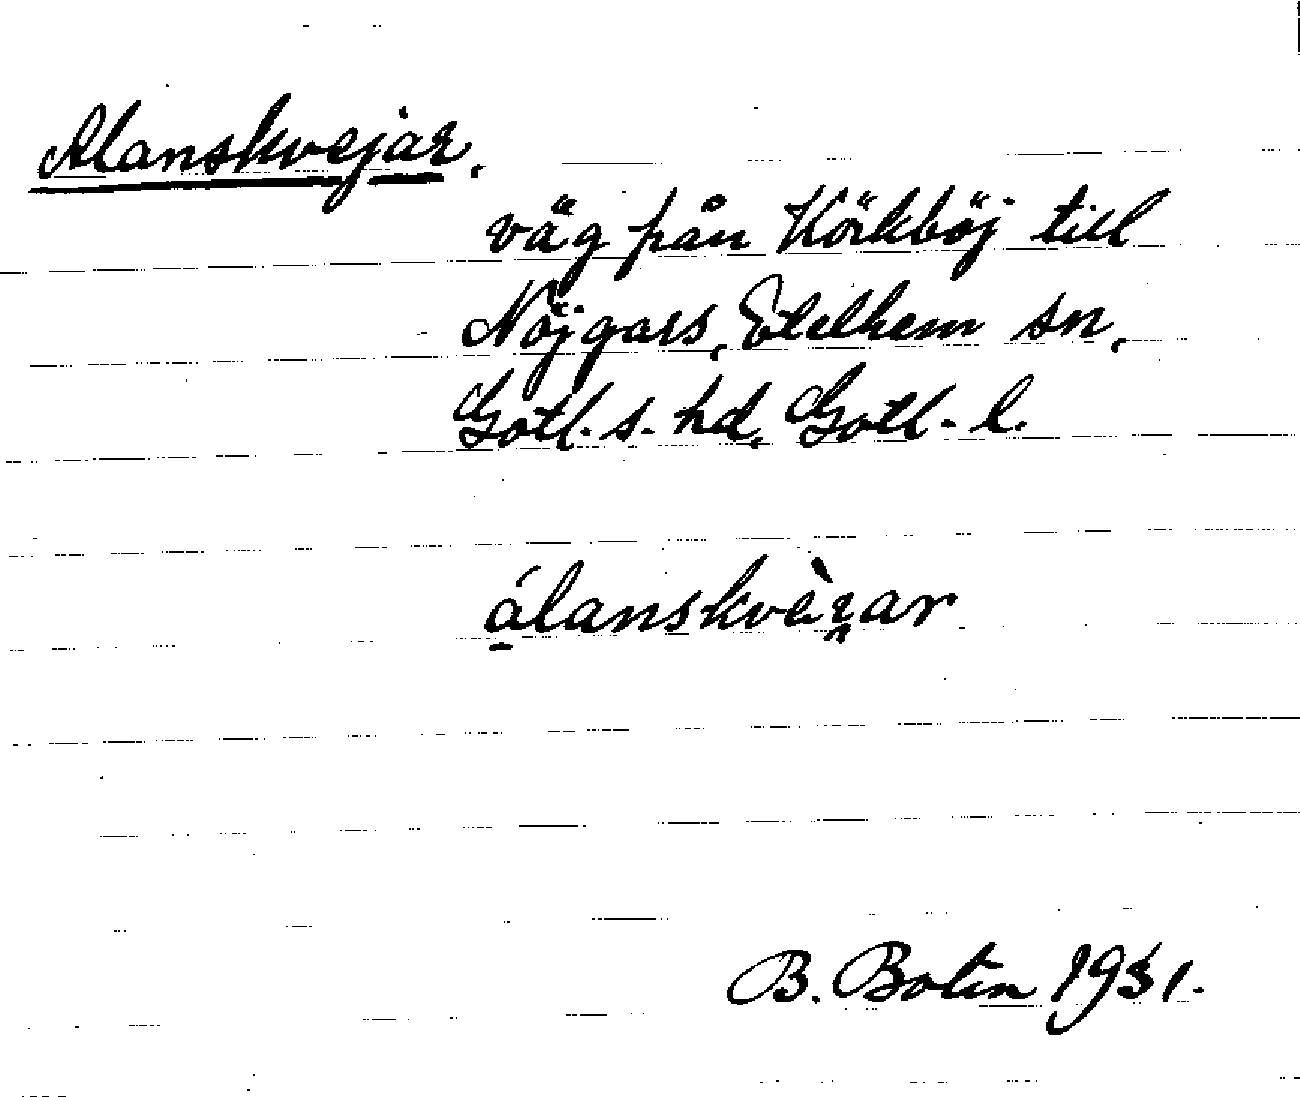 Alanskvejar.
väg från Körkböj till
Nöjgars, Etelhem sn,
Gotl. s. hd, Gotl. l.
B. Botin 1931.